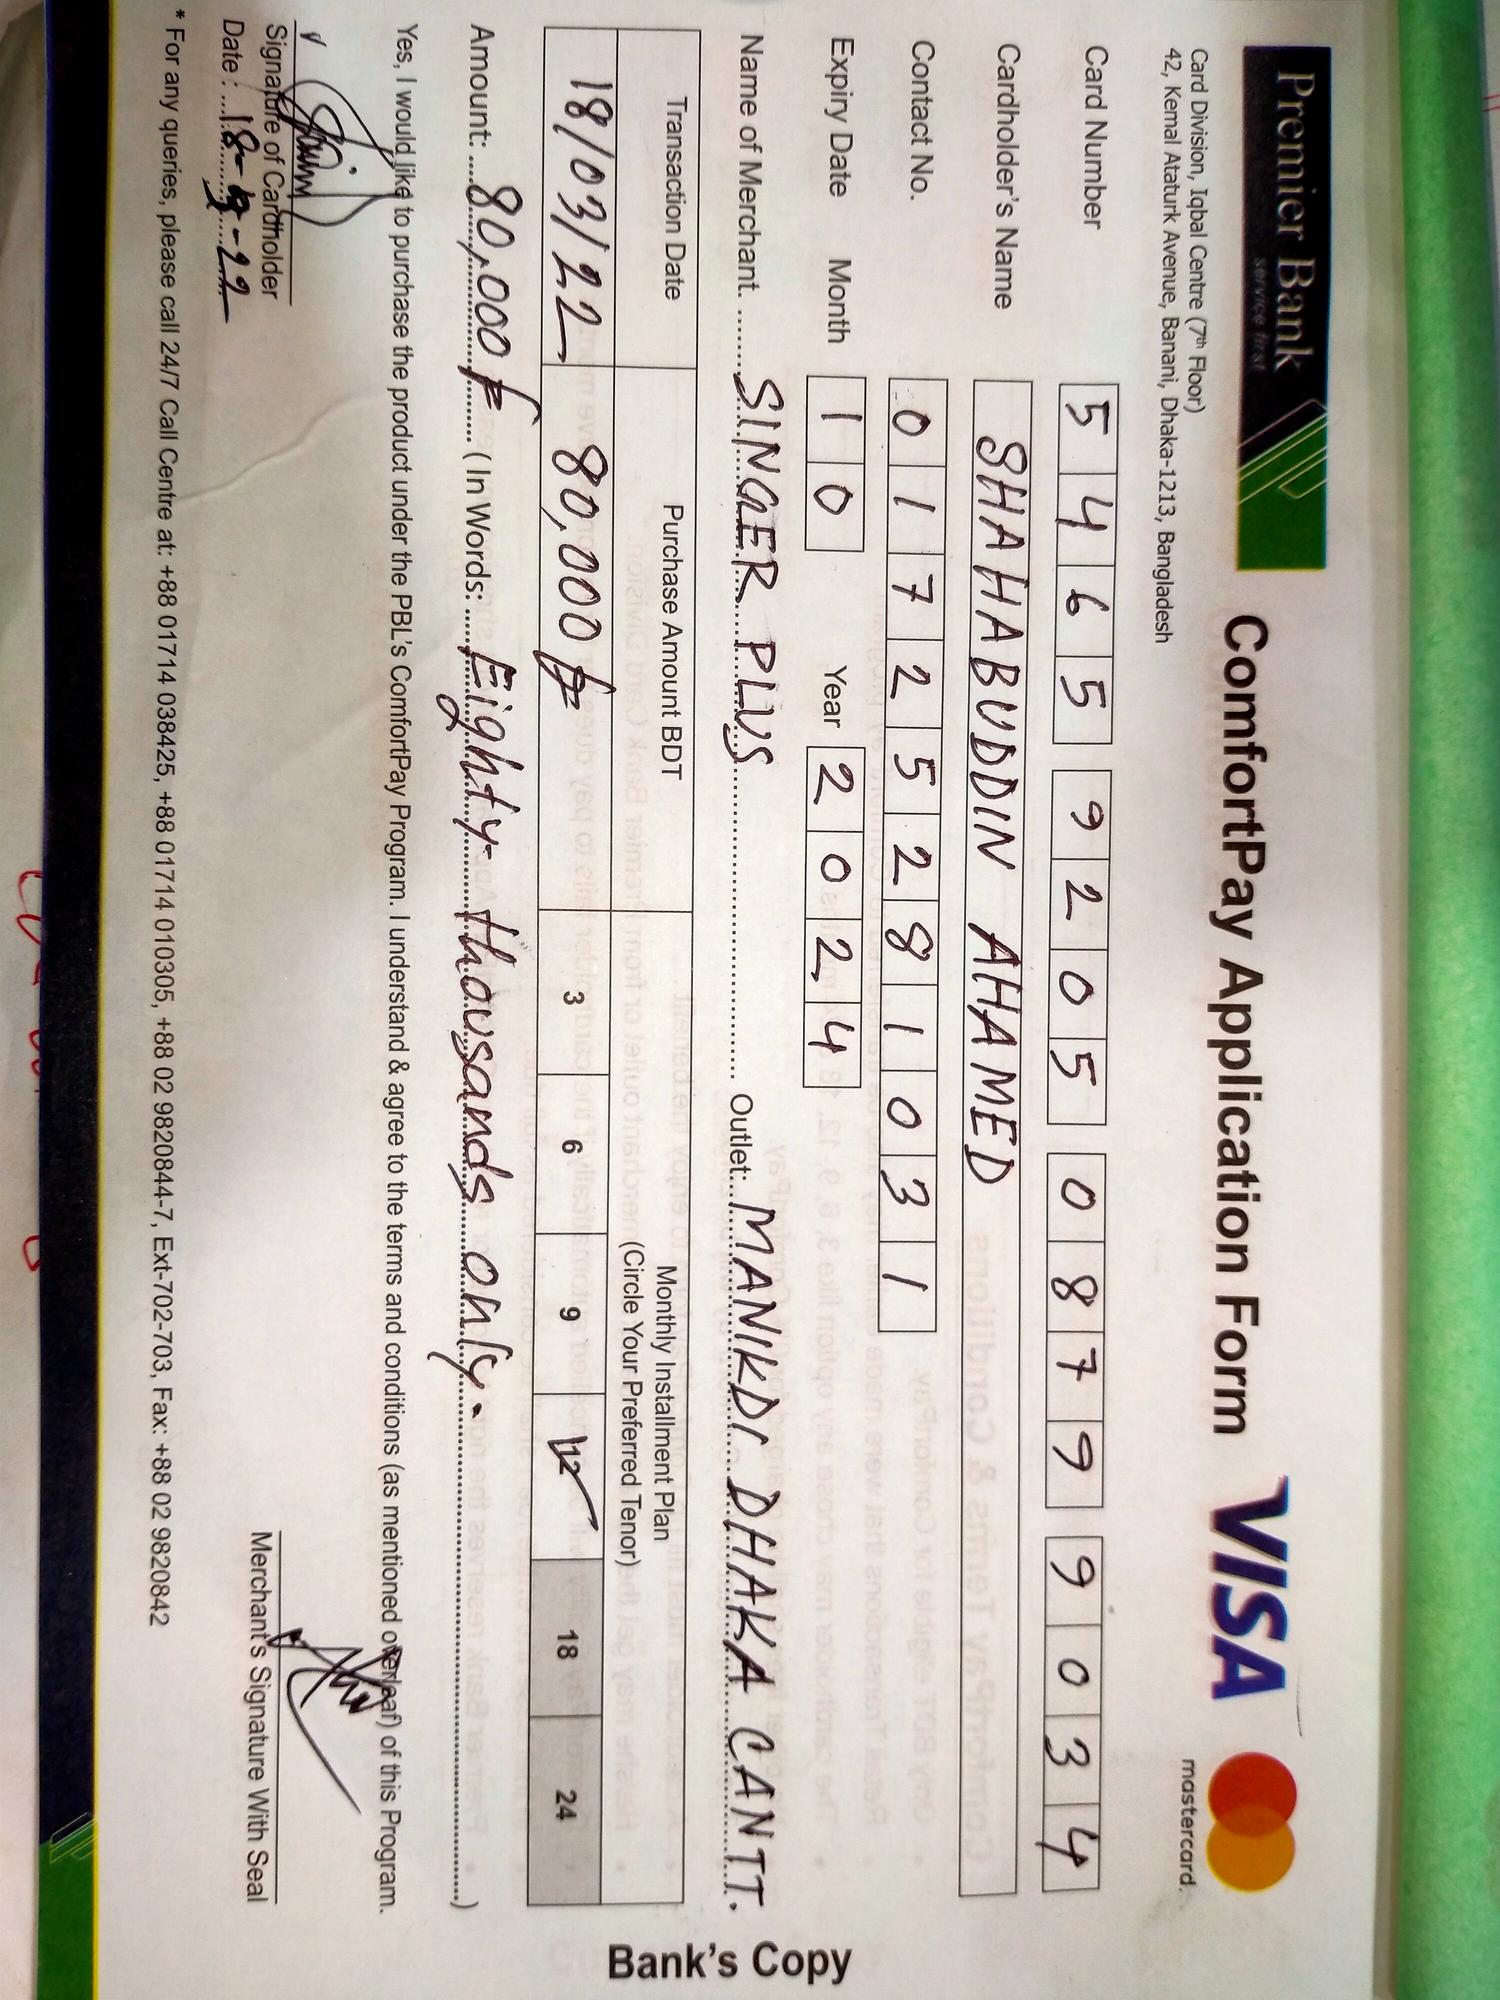 Premier Bank
service first
ComfortPay Application Form
VISA
mastercard.
Card Division, Iqbal Centre (7th Floor)
42, Kemal Ataturk Avenue, Banani, Dhaka-1213, Bangladesh
Card Number 5465 9205 0879 9034
Cardholder's Name SHAHABUDDIN AHAMED
Contact No. 01725281031
Expiry Date Month 10 Year 2024
Name of Merchant. SINGER PLUS Outlet: MANIKDI DHAKA CANTT.
Transaction Date Purchase Amount BDT Monthly Installment Plan
(Circle Your Preferred Tenor)
18/03/22 80,000/= 3 6 9 12 18 24
Amount: 80,000/= ( In Words: Eighty thousands only. )
Yes, I would like to purchase the product under the PBL's ComfortPay Program. I understand & agree to the terms and conditions (as mentioned overleaf) of this Program.
Signature of Cardholder
Merchant's Signature With Seal
Date :
* For any queries, please call 24/7 Call Centre at: +88 01714 038425, +88 01714 010305, +88 02 9820844-7, Ext-702-703, Fax: +88 02 9820842
Bank's Copy